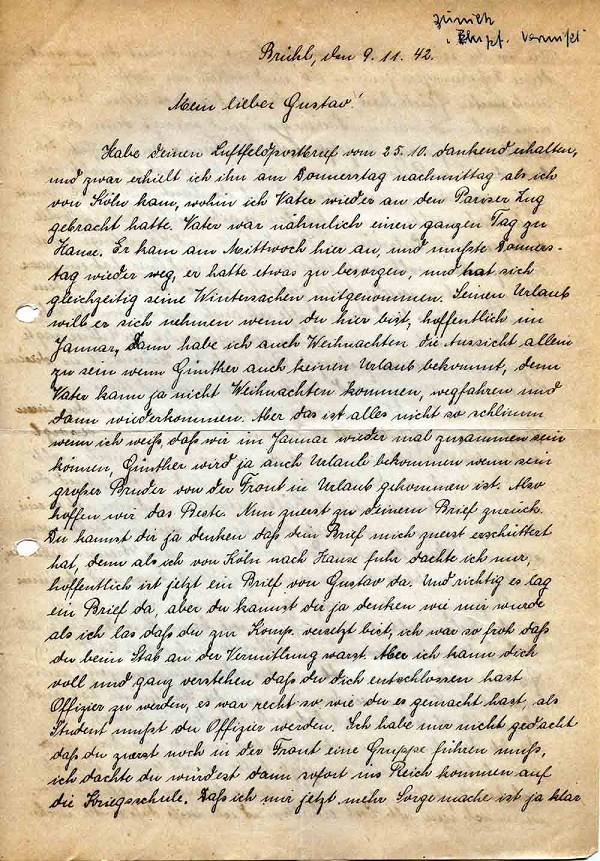 zurück
Empf. vermißt
Brühl, den 9. 11. 42.
Mein lieber Gustav!
Habe deinen Luftfeldpostbrief vom 25. 10. dankend erhalten,
und zwar erhielt ich ihn am Donnerstag nachmittag als ich
von Köln kam, wohin ich Vater wieder an den Pariser Zug
gebracht hatte. Vater war nähmlich einen ganzen Tag zu
Hause. Er kam am Mittwoch hier an, und mußte Donners-
tag wieder weg, er hatte etwas zu besorgen, und hat sich
gleichzeitig seine Wintersachen mitgenommen. Seinen Urlaub
will er sich nehmen wenn du hier bist, hoffentlich im
Januar, Dann habe ich auch Weihnachten die Aussicht allein
zu sein wenn Günther auch keinen Urlaub bekommt, denn
Vater kann ja nicht Weihnachten kommen, wegfahren und
dann wiederkommen. Aber das ist alles nicht so schlimm
wenn ich weiß, daß wir im Januar wieder mal zusammen sein
können, Günther wird ja auch Urlaub bekommen wenn sein
großer Bruder von der Front in Urlaub gekommen ist. Also
hoffen wir das Beste. Nun zuerst zu deinem Brief zurück.
Du kannst dir ja denken daß dein Brief mich zuerst erschüttert
hat, denn als ich von Köln nach Hause fuhr dachte ich nur,
hoffentlich ist jetzt ein Brief von Gustav da. Und richtig es lag
ein Brief da, aber du kannst dir ja denken wie mir wurde
als ich las daß du zur Komp. versetzt bist, ich war so froh daß
du beim Stab an der Vermittlung warst. Aber ich kann dich
voll und ganz verstehen daß du dich entschlossen hast
Offizier zu werden, es war recht so wie du es gemacht hast, als
Student mußt du Offizier werden. Ich habe nur nicht gedacht
daß du zuerst noch in der Front eine Gruppe führen muß,
ich dachte du würdest dann sofort ins Reich kommen auf
die Kriegsschule. Daß ich mir jetzt mehr Sorge mache ist ja klar